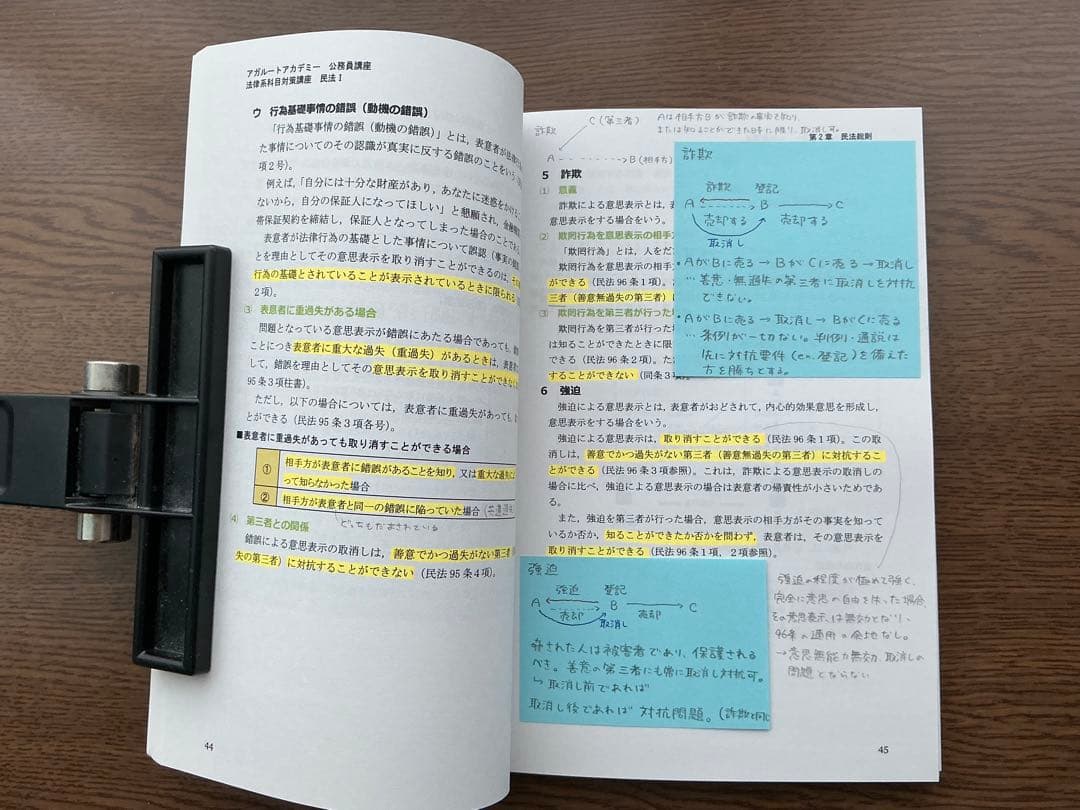 アガルートアカデミー 公務員講座
法律系科目対策講座 民法Ⅰ
ウ 行為基礎事情の錯誤（動機の錯誤）
「行為基礎事情の錯誤（動機の錯誤）」とは，表意者が法律行
た事情についてのその認識が真実に反する錯誤のことをいう
項2号）。
例えば，「自分には十分な財産があり，あなたに迷惑をかける
ないから，自分の保証人になってほしい」と懇願され，金融機関
帯保証契約を締結し，保証人となってしまった場合のことである
表意者が法律行為の基礎とした事情について誤認（事実の錯誤
とを理由としてその意思表示を取り消すことができるのは，その
行為の基礎とされていることが表示されているときに限られる
2項）。
③ 表意者に重過失がある場合
問題となっている意思表示が錯誤にあたる場合であっても，錯誤
ことにつき表意者に重大な過失（重過失）があるときは，表意者
して，錯誤を理由としてその意思表示を取り消すことができない
95条3項柱書）。
ただし，以下の場合については，表意者に重過失があっても
とができる（民法95条3項各号）。
■表意者に重過失があっても取り消すことができる場合
① 相手方が表意者に錯誤があることを知り，又は重大な過失に
って知らなかった場合
② 相手方が表意者と同一の錯誤に陥っていた場合（共通
どっちもだまされている
④ 第三者との関係
錯誤による意思表示の取消しは，善意でかつ過失がない第三者
失の第三者）に対抗することができない（民法95条4項）。
44
詐欺
C（第三者）
A
B（相手方）
Aは相手方Bが詐欺の事実を知り，
または知ることができた時に限り，取消し可。
第2章 民法総則
5 詐欺
① 意義
詐欺による意思表示とは，表
意思表示をする場合をいう。
② 欺罔行為を意思表示の相手方
「欺罔行為」とは，人をだ
欺罔行為を意思表示の相手
ができる（民法96条1項）。
三者（善意無過失の第三者）に
③ 欺罔行為を第三者が行った場
欺罔行為を第三者が行った場
は知ることができたときに限
できる（民法96条2項）。た
することができない（同条3項）
詐欺
詐欺 登記
A B C
売却する 売却する
取消し
・AがBに売る→BがCに売る→取消し
…善意・無過失の第三者に取消しを対抗
できない。
・AがBに売る→取消し→BがCに売る
…条例が一切ない。判例・通説は
先に対抗要件（ex.登記）を備えた
方を勝ちとする。
6 強迫
強迫による意思表示とは，表意者がおどされて，内心的効果意思を形成し，
意思表示をする場合をいう。
強迫による意思表示は，取り消すことができる（民法96条1項）。この取
消しは，善意でかつ過失がない第三者（善意無過失の第三者）に対抗するこ
とができる（民法96条3項参照）。これは，詐欺による意思表示の取消しの
場合に比べ，強迫による意思表示の場合は表意者の帰責性が小さいためであ
る。
また，強迫を第三者が行った場合，意思表示の相手方がその事実を知って
いるか否か，知ることができたか否かを問わず，表意者は，その意思表示を
取り消すことができる（民法96条1項，2項参照）。
強迫
強迫 登記
A B C
売却 取消し 売却
脅された人は被害者であり，保護される
べき。善意の第三者にも常に取消し対抗可。
↳取消し前であれば
取消し後であれば対抗問題。（詐欺と同じ
強迫の程度が極めて強く，
完全に意思の自由を失った場合，
その意思表示は無効となり，
96条の適用の余地なし。
→意思無能力無効，取消しの
問題とならない
45